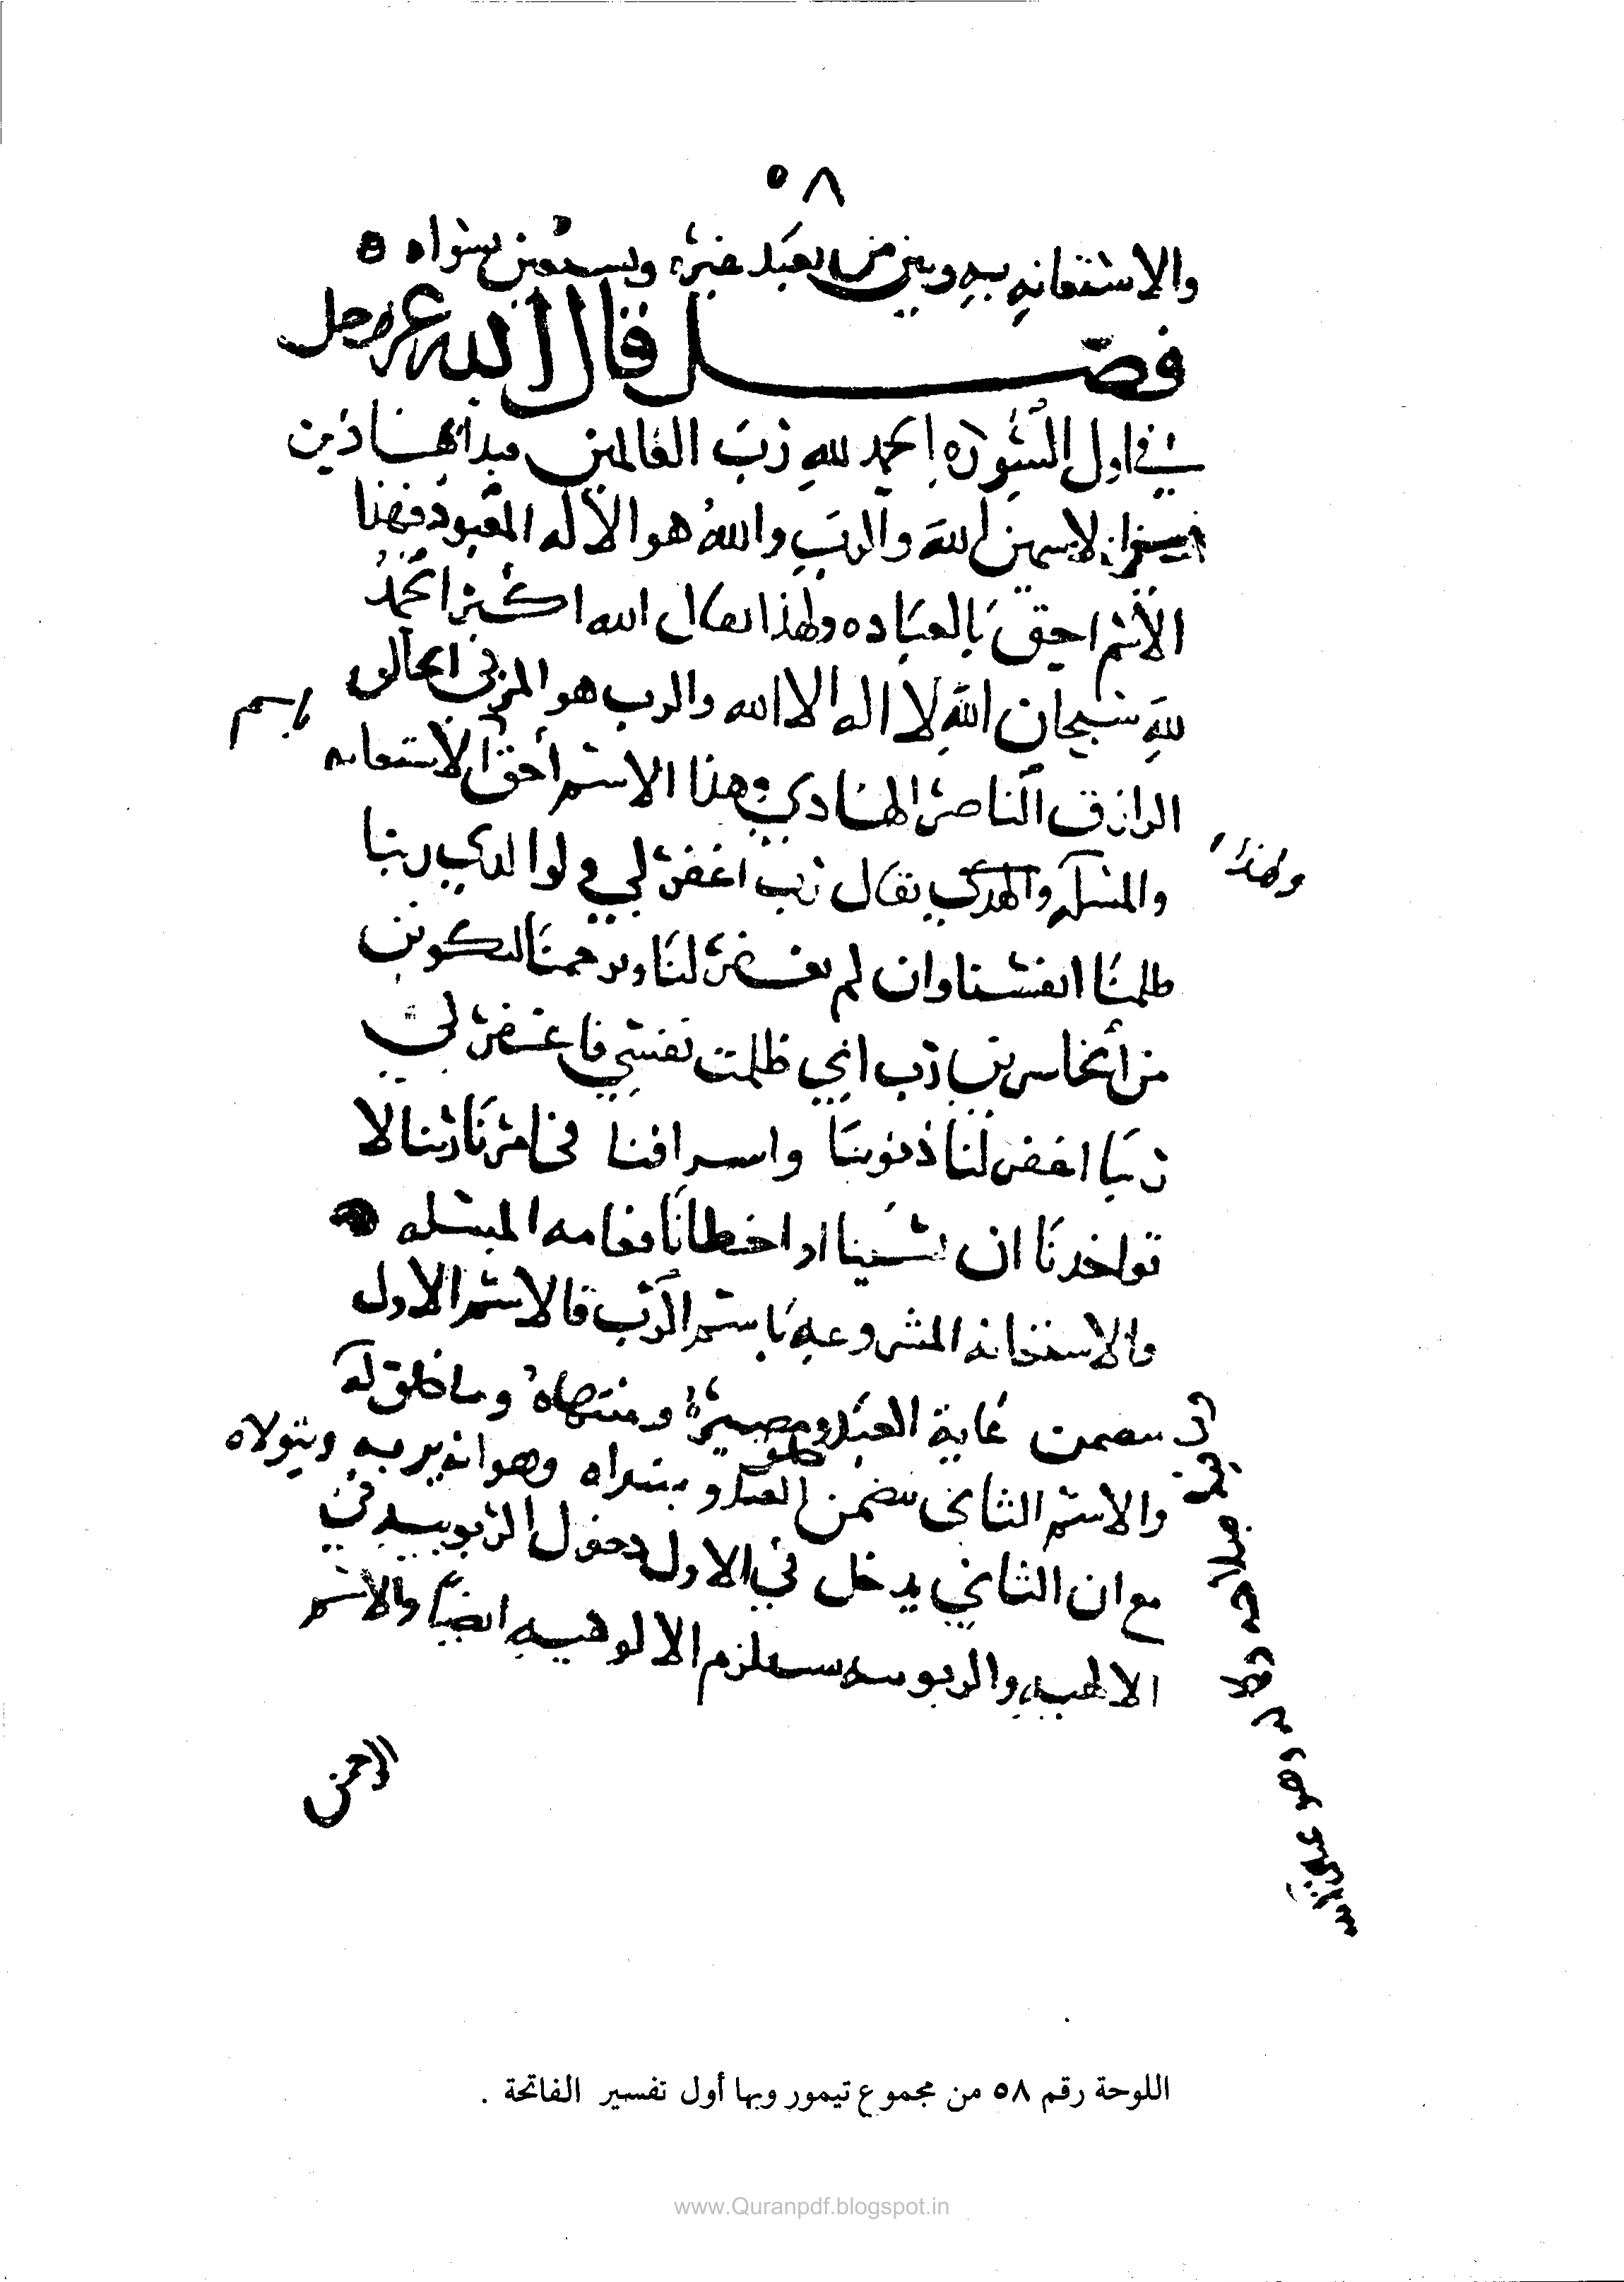 ٥٨
والاستعانه به وبين من يعبد غيره ويستعين بسواه ه
فصل قال الله عز وجل
في اول السوره الحمد لله رب العالمين فبدا بهذين
الاسمين لله والرب والله هو الاله المعبود فهذا
الاسم احق بالعباده ولهذا يقال الله اكبر الحمد
لله سبحان الله لا اله الا الله والرب هو المربي الخالق
الرازق الناصر الهادي وهذا الاسم أحق الاستعانه
باسم
والمسله والهدي يقال رب اغفر لي و لوالدي ربنا
ولهذا
ظلمنا انفسنا وان لم تغفر لنا وترحمنا لنكونن
من الخاسرين رب اني ظلمت نفسي فاغفر لي
ربنا اغفر لنا ذنوبنا واسرافنا في امرنا ربنا لا
تواخذنا ان نسينا او اخطانا فعامه المسله
والاستعانه المشروعه باسم الرب فالاسم الاول
يتضمن غاية العبد ومصيره ومنتهاه وما خلق له
والاسم الثاني يتضمن خلق العبد و مبتداه وهو انه يربه ويتولاه
مع ان الثاني يدخل في الاول دخول الربوبيه في
الالهيه والربوبيه تستلزم الالوهيه ايضا والاسم
الرحمن
اللوحة رقم ٥٨ من مجموع تيمور وبها أول تفسير الفاتحة .
www.Quranpdf.blogspot.in